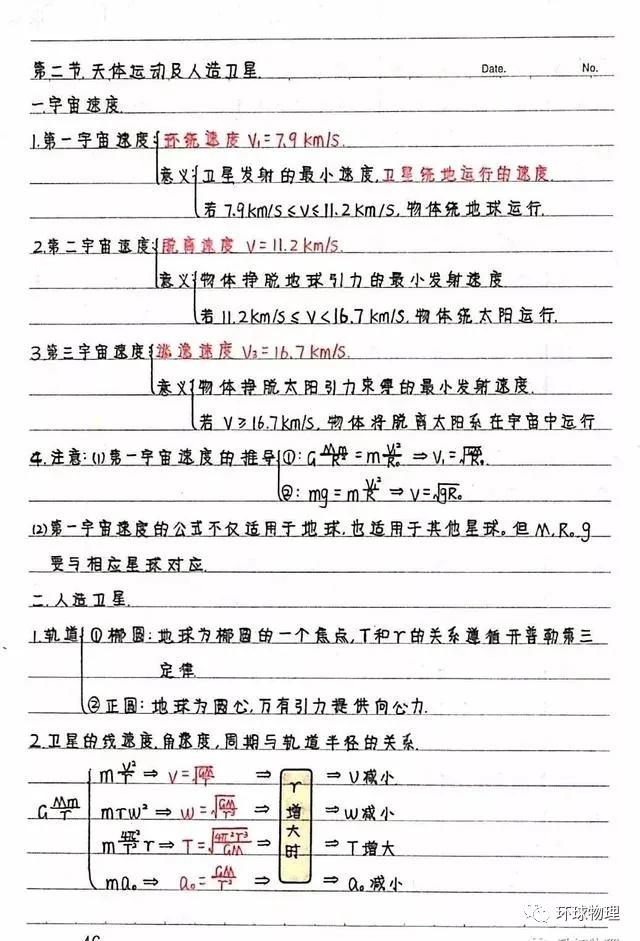 第二节.天体运动及人造卫星. Date. No.
一.宇宙速度.
1.第一宇宙速度: 环绕速度 V₁=7.9km/s.
意义: 卫星发射的最小速度,卫星绕地运行的速度.
若 7.9km/s≤v≤11.2km/s, 物体绕地球运行.
2.第二宇宙速度: 脱离速度 V=11.2km/s.
意义: 物体挣脱地球引力的最小发射速度
若 11.2km/s≤v<16.7km/s, 物体绕太阳运行.
3.第三宇宙速度: 逃逸速度 V₃=16.7km/s.
意义: 物体挣脱太阳引力束缚的最小发射速度.
若 V≥16.7km/s, 物体将脱离太阳系在宇宙中运行
4.注意: (1)第一宇宙速度的推导 ①: G Mm/R² = m V₁²/R₀ ⇒ V₁=
②: mg = m V²/R ⇒ V=√gR₀.
(2)第一宇宙速度的公式不仅适用于地球,也适用于其他星球。但 M,R₀,g
要与相应星球对应.
二.人造卫星.
1.轨道 ①椭圆: 地球为椭圆的一个焦点,T和r的关系遵循开普勒第三
定律
②正圆: 地球为圆心,万有引力提供向心力.
2.卫星的线速度,角速度,周期与轨道半径的关系.
m V²/r ⇒ V=√GM/r ⇒ ⇒ V减小
G Mm/r mrw² ⇒ w=√GM/r³ ⇒ r增大时 ⇒ w减小
m 4π²/T² r ⇒ T=√4π²r³/GM ⇒ ⇒ T增大
ma₀ ⇒ a₀=GM/r² ⇒ ⇒ a₀减小
环球物理